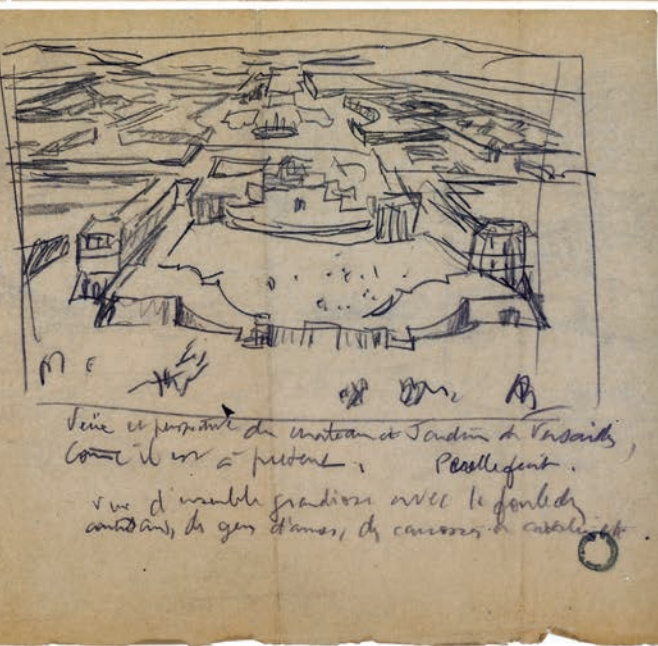 M E
Veüe et perspective du chateau et Jardin de Versailles,
Comme il est à présent. Perelle fecit.
vue d'ensemble grandiose avec la foule des
courtisans, des gens d'armes, des carosses et